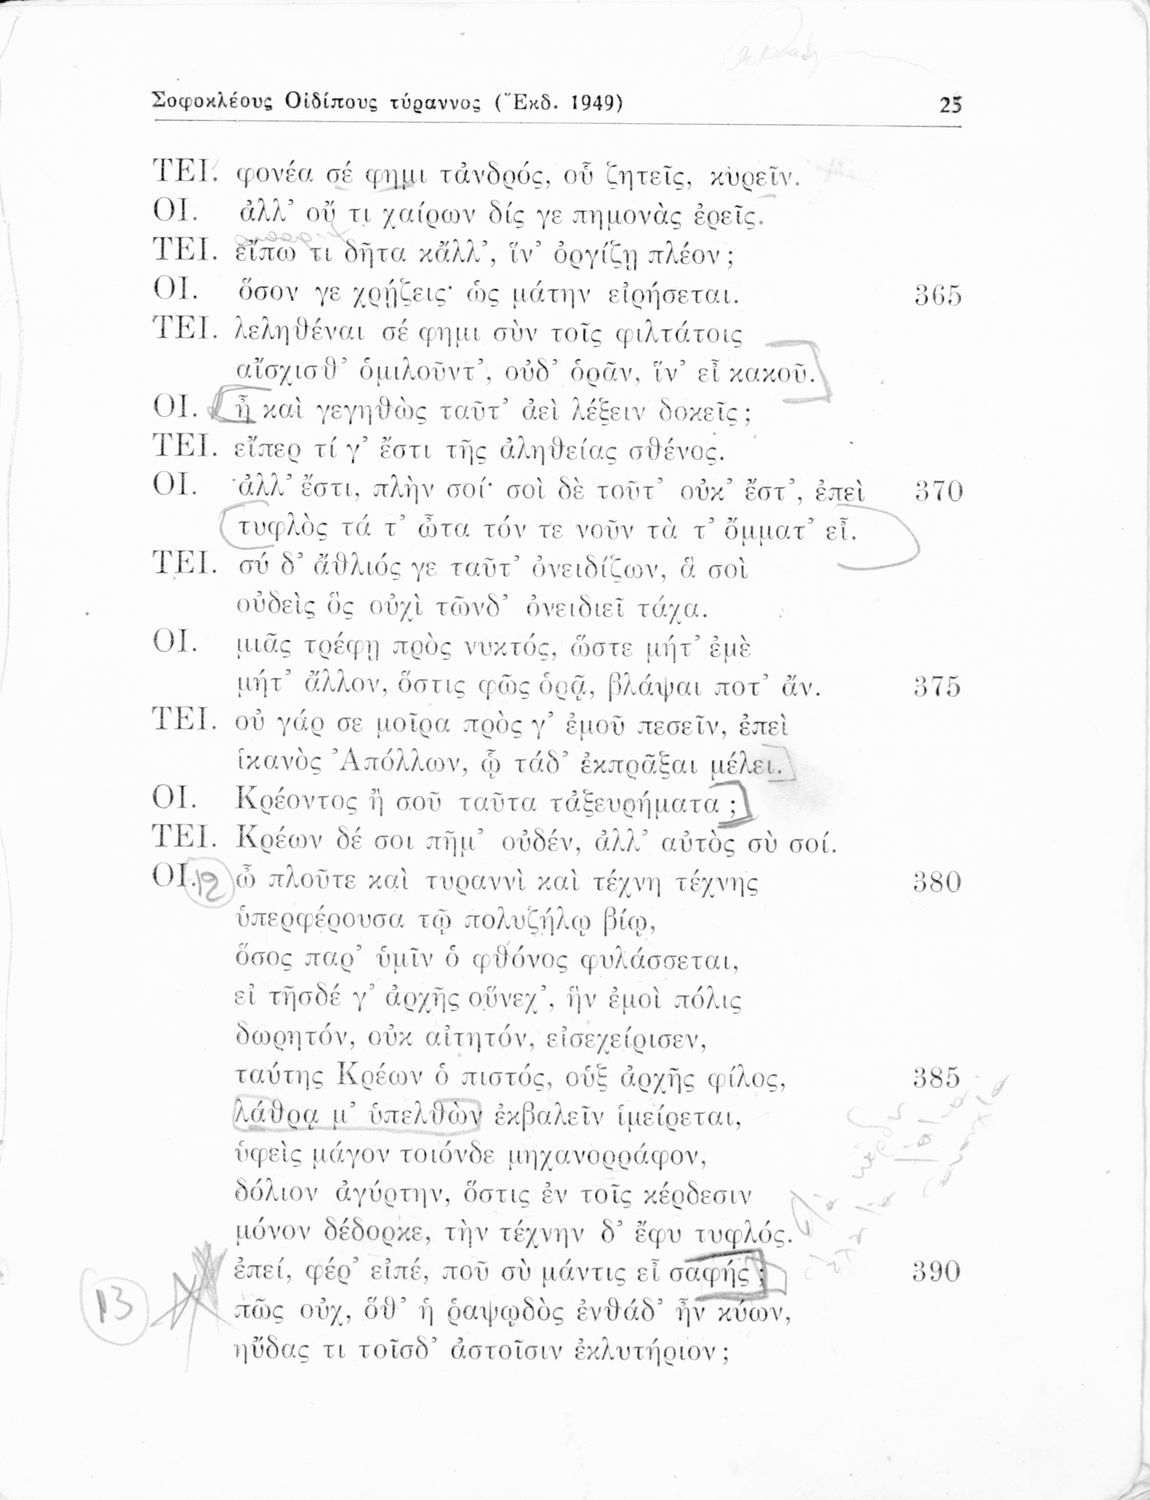 Σοφοκλέους Οἰδίπους τύραννος (Ἔκδ. 1949) 25
ΤΕΙ. φονέα σέ φημι τἀνδρός, οὗ ζητεῖς, κυρεῖν.
ΟΙ. ἀλλ' οὔ τι χαίρων δίς γε πημονὰς ἐρεῖς.
ΤΕΙ. εἴπω τι δῆτα κἄλλ', ἵν' ὀργίζῃ πλέον;
ΟΙ. ὅσον γε χρῄζεις· ὡς μάτην εἰρήσεται. 365
ΤΕΙ. λεληθέναι σέ φημι σὺν τοῖς φιλτάτοις
αἴσχισθ' ὁμιλοῦντ', οὐδ' ὁρᾶν, ἵν' εἶ κακοῦ.
ΟΙ. ἦ καὶ γεγηθὼς ταῦτ' ἀεὶ λέξειν δοκεῖς;
ΤΕΙ. εἴπερ τί γ' ἔστι τῆς ἀληθείας σθένος.
ΟΙ. ἀλλ' ἔστι, πλὴν σοί· σοὶ δὲ τοῦτ' οὐκ' ἔστ', ἐπεὶ 370
τυφλὸς τά τ' ὦτα τόν τε νοῦν τὰ τ' ὄμματ' εἶ.
ΤΕΙ. σύ δ' ἄθλιός γε ταῦτ' ὀνειδίζων, ἃ σοὶ
οὐδεὶς ὃς οὐχὶ τῶνδ' ὀνειδιεῖ τάχα.
ΟΙ. μιᾶς τρέφῃ πρὸς νυκτός, ὥστε μήτ' ἐμὲ
μήτ' ἄλλον, ὅστις φῶς ὁρᾷ, βλάψαι ποτ' ἄν. 375
ΤΕΙ. οὐ γάρ σε μοῖρα πρὸς γ' ἐμοῦ πεσεῖν, ἐπεὶ
ἱκανὸς Ἀπόλλων, ᾧ τάδ' ἐκπρᾶξαι μέλει.
ΟΙ. Κρέοντος ἢ σοῦ ταῦτα τἀξευρήματα;
ΤΕΙ. Κρέων δέ σοι πῆμ' οὐδέν, ἀλλ' αὐτὸς σὺ σοί.
ΟΙ. 12 ὦ πλοῦτε καὶ τυραννὶ καὶ τέχνη τέχνης 380
ὑπερφέρουσα τῷ πολυζήλῳ βίῳ,
ὅσος παρ' ὑμῖν ὁ φθόνος φυλάσσεται,
εἰ τῆσδέ γ' ἀρχῆς οὕνεχ', ἣν ἐμοὶ πόλις
δωρητόν, οὐκ αἰτητόν, εἰσεχείρισεν,
ταύτης Κρέων ὁ πιστός, οὑξ ἀρχῆς φίλος, 385
λάθρᾳ μ' ὑπελθὼν ἐκβαλεῖν ἱμείρεται,
ὑφεὶς μάγον τοιόνδε μηχανορράφον,
δόλιον ἀγύρτην, ὅστις ἐν τοῖς κέρδεσιν
μόνον δέδορκε, τὴν τέχνην δ' ἔφυ τυφλός.
ἐπεί, φέρ' εἰπέ, ποῦ σὺ μάντις εἶ σαφής; 390
13 πῶς οὐχ, ὅθ' ἡ ῥαψῳδὸς ἐνθάδ' ἦν κύων,
ηὔδας τι τοῖσδ' ἀστοῖσιν ἐκλυτήριον;